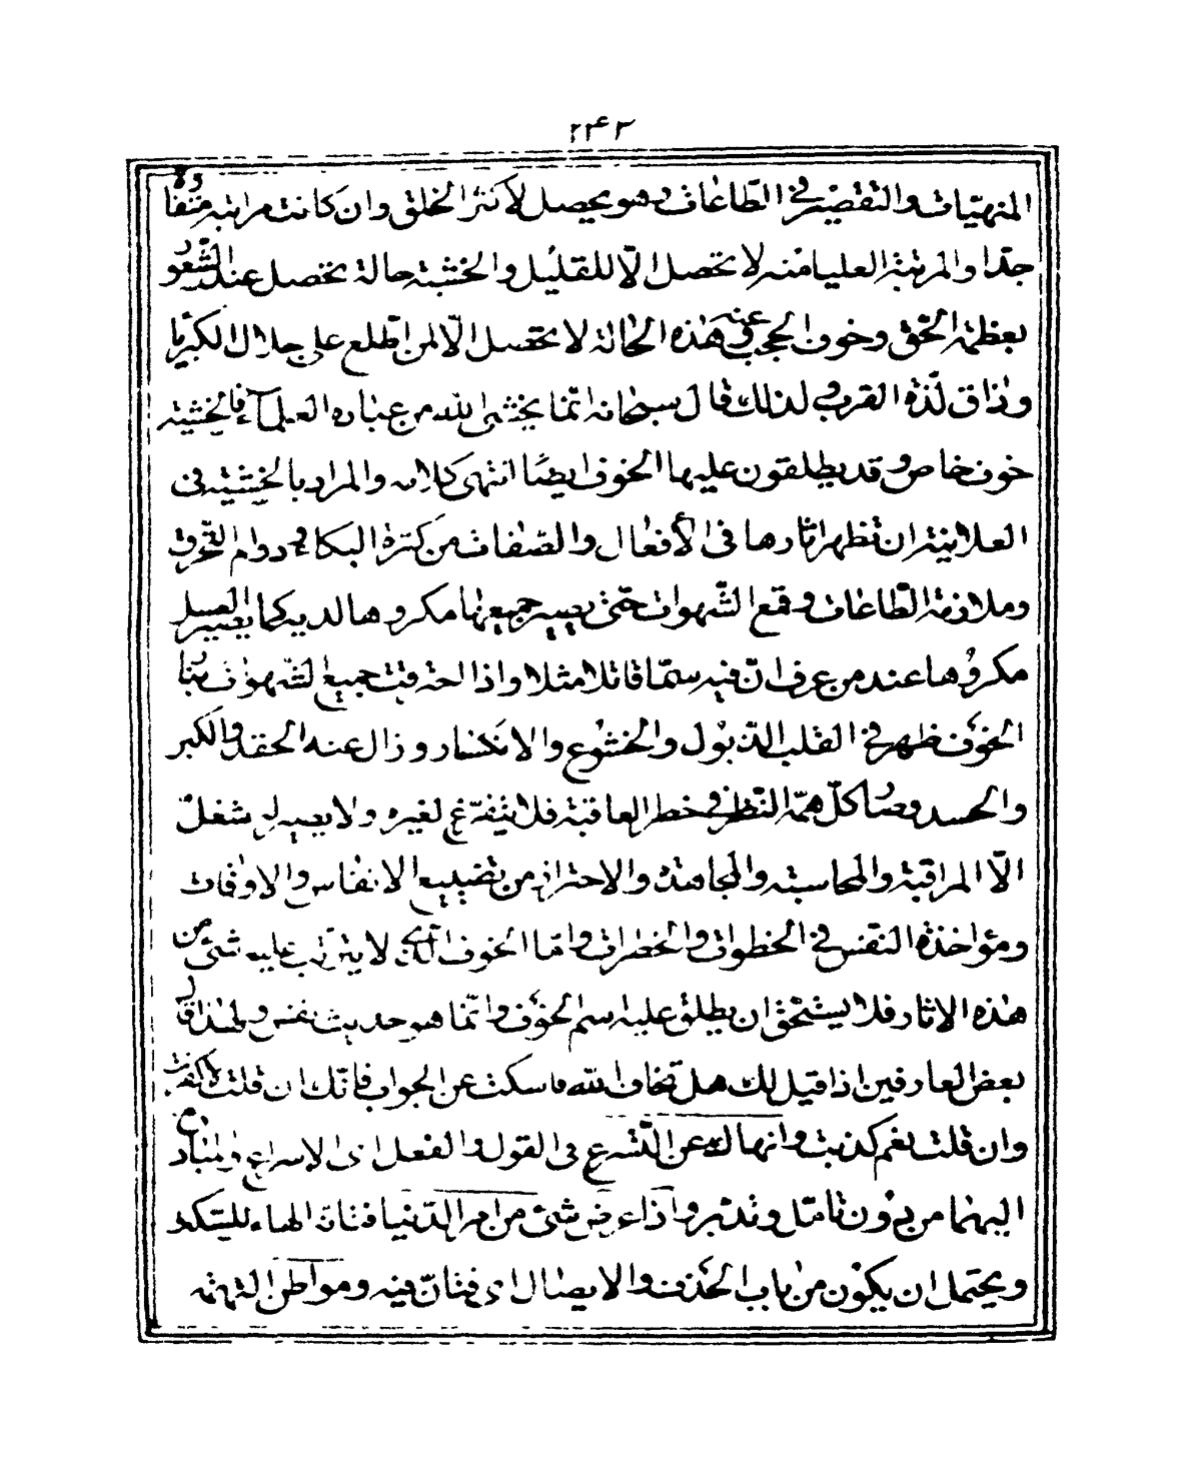 ۲۴۲
المنهيّات والتّقصير في الطّاعات وهو يحصل لأكثر الخلق وان كانت مراتبه متفاوتة
جدّا والمرتبة العليا منه لا تحصل الّا للقليل والخشية حالة تحصل عند الشّعور
بعظمة الحّق وخوف الحجب عنه وهذه الحالة لا تحصل الّا لمن اطّلع على جلال الكبريا
وذاق لذّة القرب ولذلك قال سبحانه انّما يخشى الله من عباده العلمآء فالخشية
خوف خاص وقد يطلقون عليها الخوف ايضًا انتهى كلامه والمراد بالخشية في
العلانية ان تظهر اثارها في الأفعال والصّفات من كثرة البكاء ودوام التّحرق
وملازمة الطّاعات وقمع الشّهوات حتى يصير جميعها مكروها لديه كما يصير العسل
مكروُها عند من عرف انّ فيه سمّا قاتلا مثلا واذا احترقت جميع الشّهوات بنار
الخوف ظهر في القلب الذّبول والخشوع والانكسار وزال عنه الحقد والكبر
والحسد وصار كلّ همّه النّظر في خطر العاقبة فلا يتفرّغ لغيره ولا يصير له شغل
الّا المراقبة والمحاسبة والمجاهدة والاحتراز من تضييع الانفاس والاوقات
ومؤاخذة النفس في الخطوات والخطرات وامّا الخوف الّذي لا يترتّب عليه شئ من
هذه الاثار فلا يستحق ان يطلق عليه اسم الخوف وانّما هو حديث نفس ولهذا قال
بعض العارفين اذا قيل لك هل تخاف الله فاسكت عن الجواب فانّك ان قلت لا كفرت
وان قلت نعم كذبت وانهاك عن التّسّرع في القول والفعل اى الاسراع والمبادرة
اليهما من دون تامّل وتدّبر واذا عرض شئ من امر الدّنيا فتانّه الهاء للسّكت
ويحتمل ان يكون من باب الحذف والايصال اى فتانّ فيه ومواطن التهمة